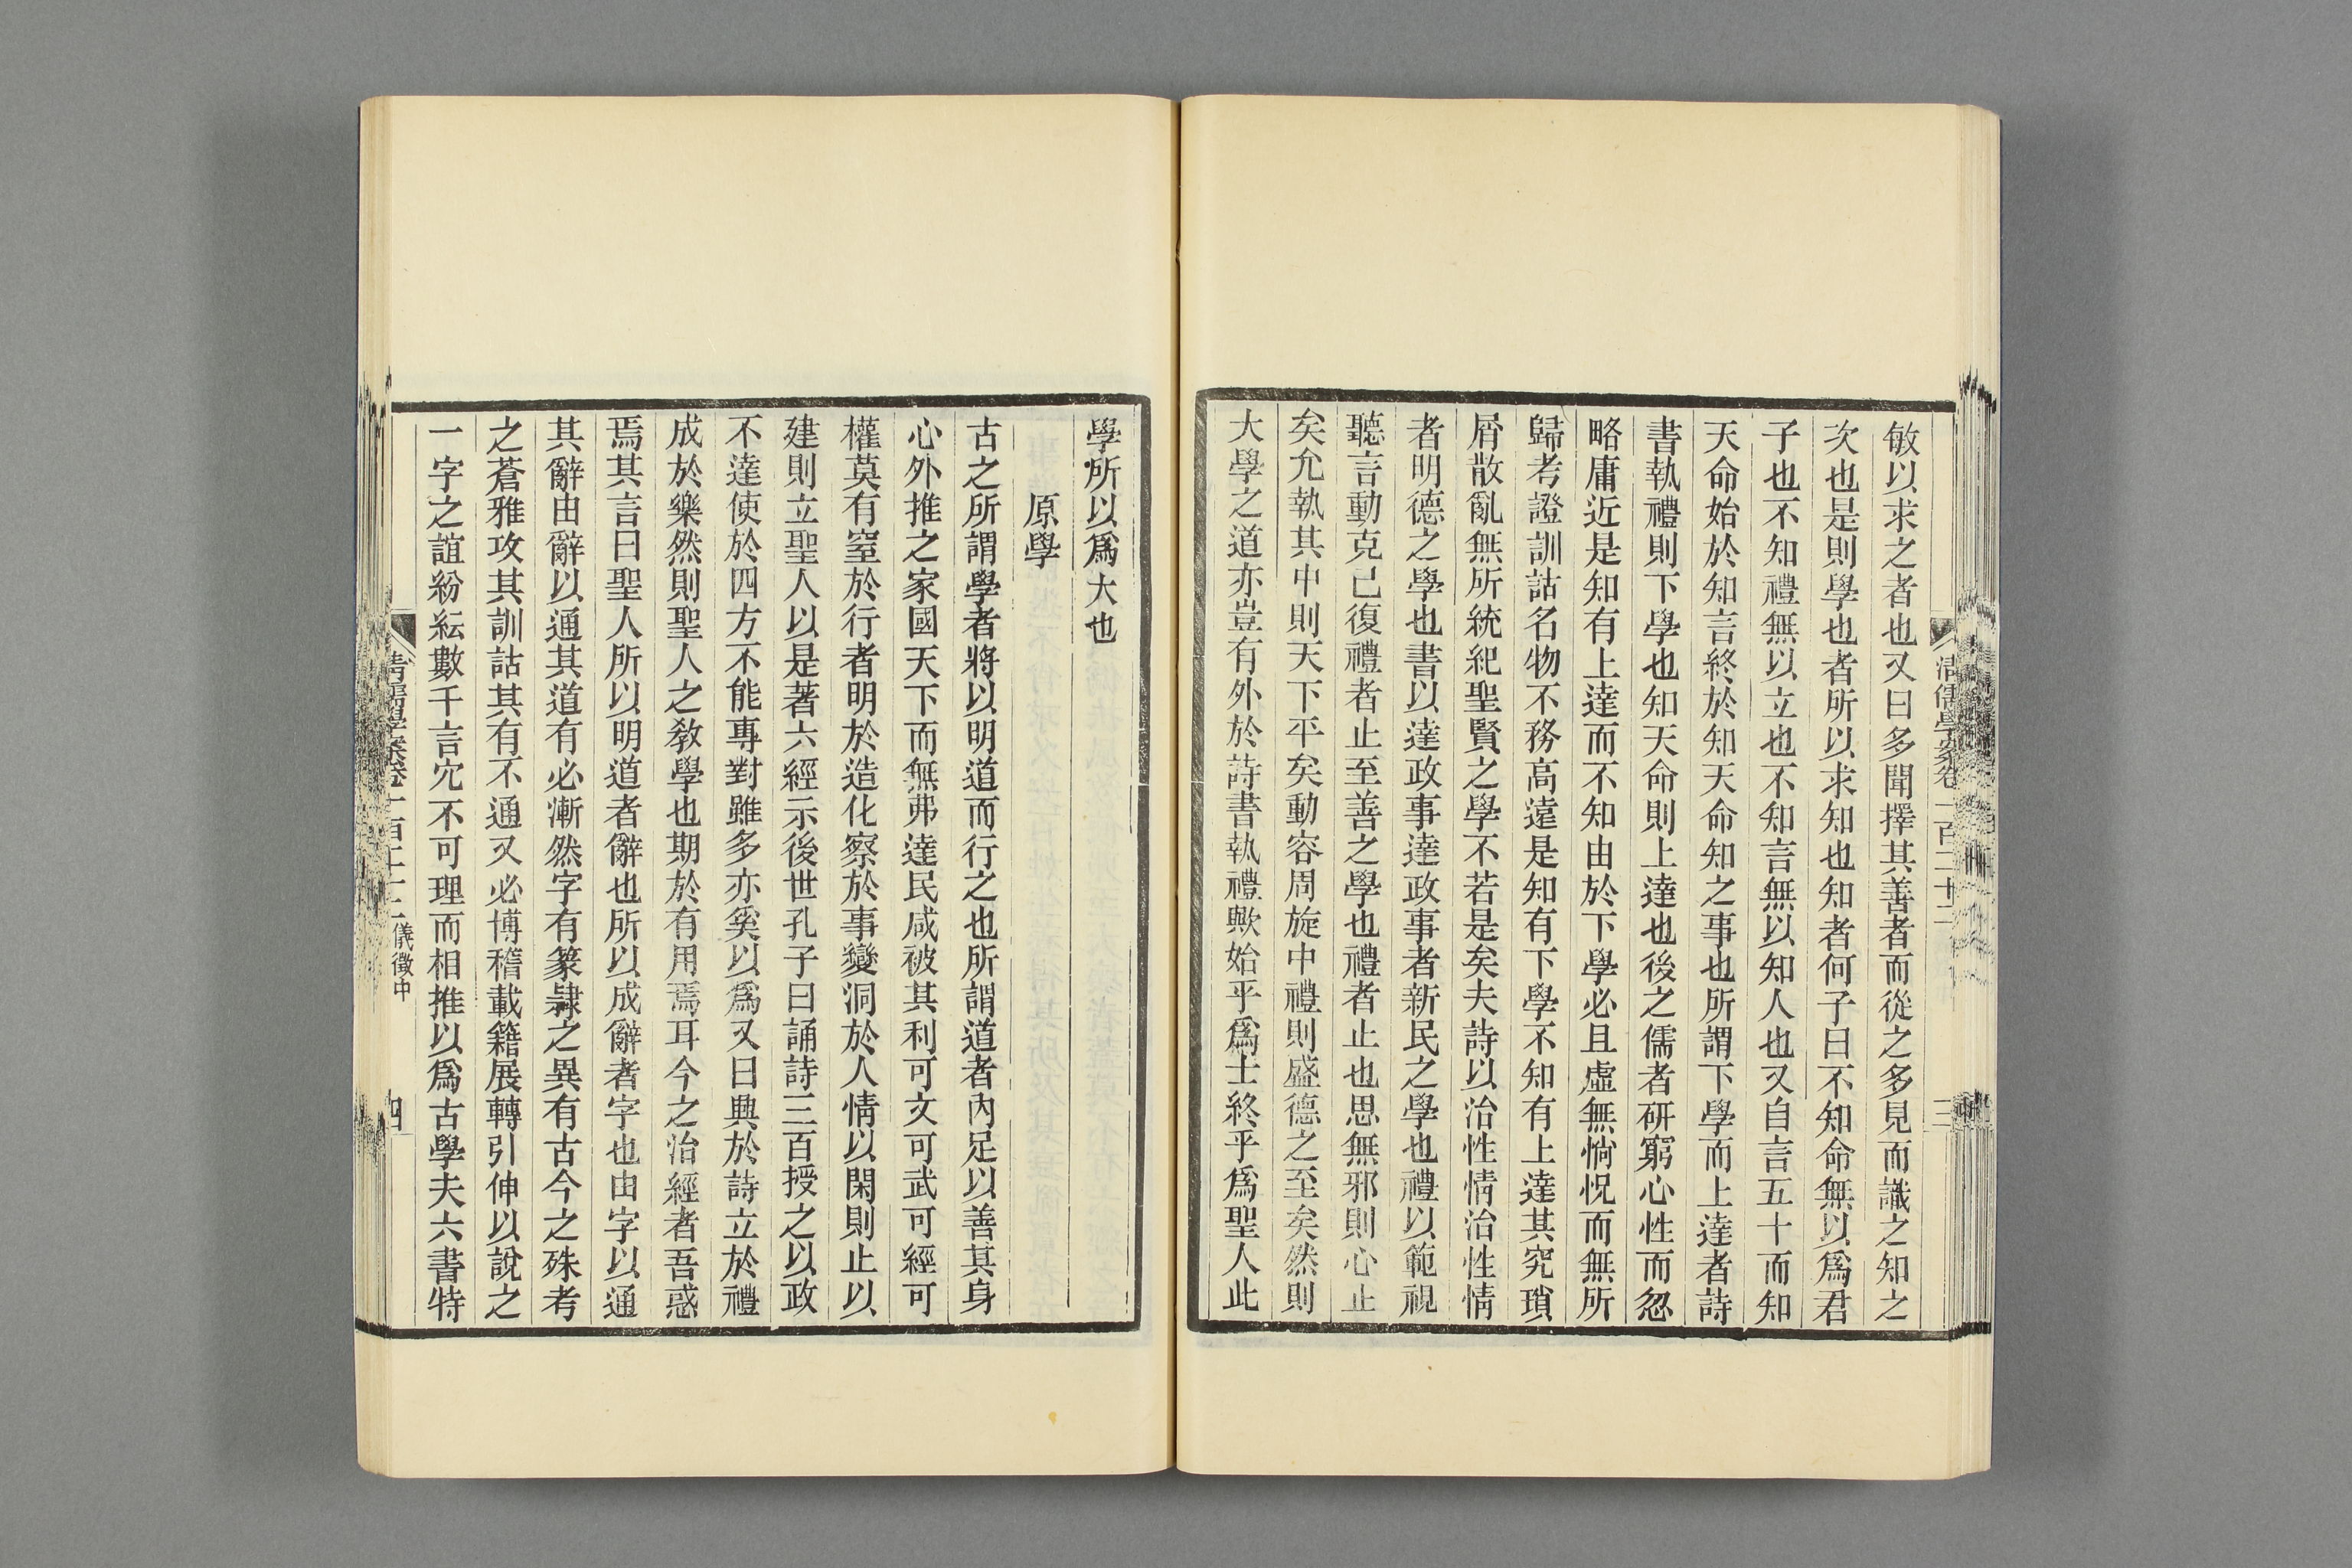 敏以求之者也又曰多聞擇其善者而從之多見而識之知之
次也是則學也者所以求知也知者何子曰不知命無以爲君
子也不知禮無以立也不知言無以知人也又自言五十而知
天命始於知言終於知天命知之事也所謂下學而上達者詩
書執禮則下學也知天命則上達也後之儒者研窮心性而忽
略庸近是知有上達而不知由於下學必且虛無惝怳而無所
歸考證訓詁名物不務高遠是知有下學不知有上達其究瑣
屑散亂無所統紀聖賢之學不若是矣夫詩以治性情治性情
者明德之學也書以達政事達政事者新民之學也禮以範視
聽言動克己復禮者止至善之學也禮者止也思無邪則心止
矣允執其中則天下平矣動容周旋中禮則盛德之至矣然則
大學之道亦豈有外於詩書執禮歟始乎爲士終乎爲聖人此
清儒學案卷一百二十二
三
學所以爲大也
原學
古之所謂學者將以明道而行之也所謂道者內足以善其身
心外推之家國天下而無弗達民咸被其利可文可武可經可
權莫有窒於行者明於造化察於事變洞於人情以閑則止以
建則立聖人以是著六經示後世孔子曰誦詩三百授之以政
不達使於四方不能專對雖多亦奚以爲又曰興於詩立於禮
成於樂然則聖人之敎學也期於有用焉耳今之治經者吾惑
焉其言曰聖人所以明道者辭也所以成辭者字也由字以通
其辭由辭以通其道有必漸然字有篆隸之異有古今之殊考
之蒼雅攻其訓詁其有不通又必博稽載籍展轉引伸以說之
一字之誼紛紜數千言冗不可理而相推以爲古學夫六書特
清儒學案卷一百二十二 儀徵中
四